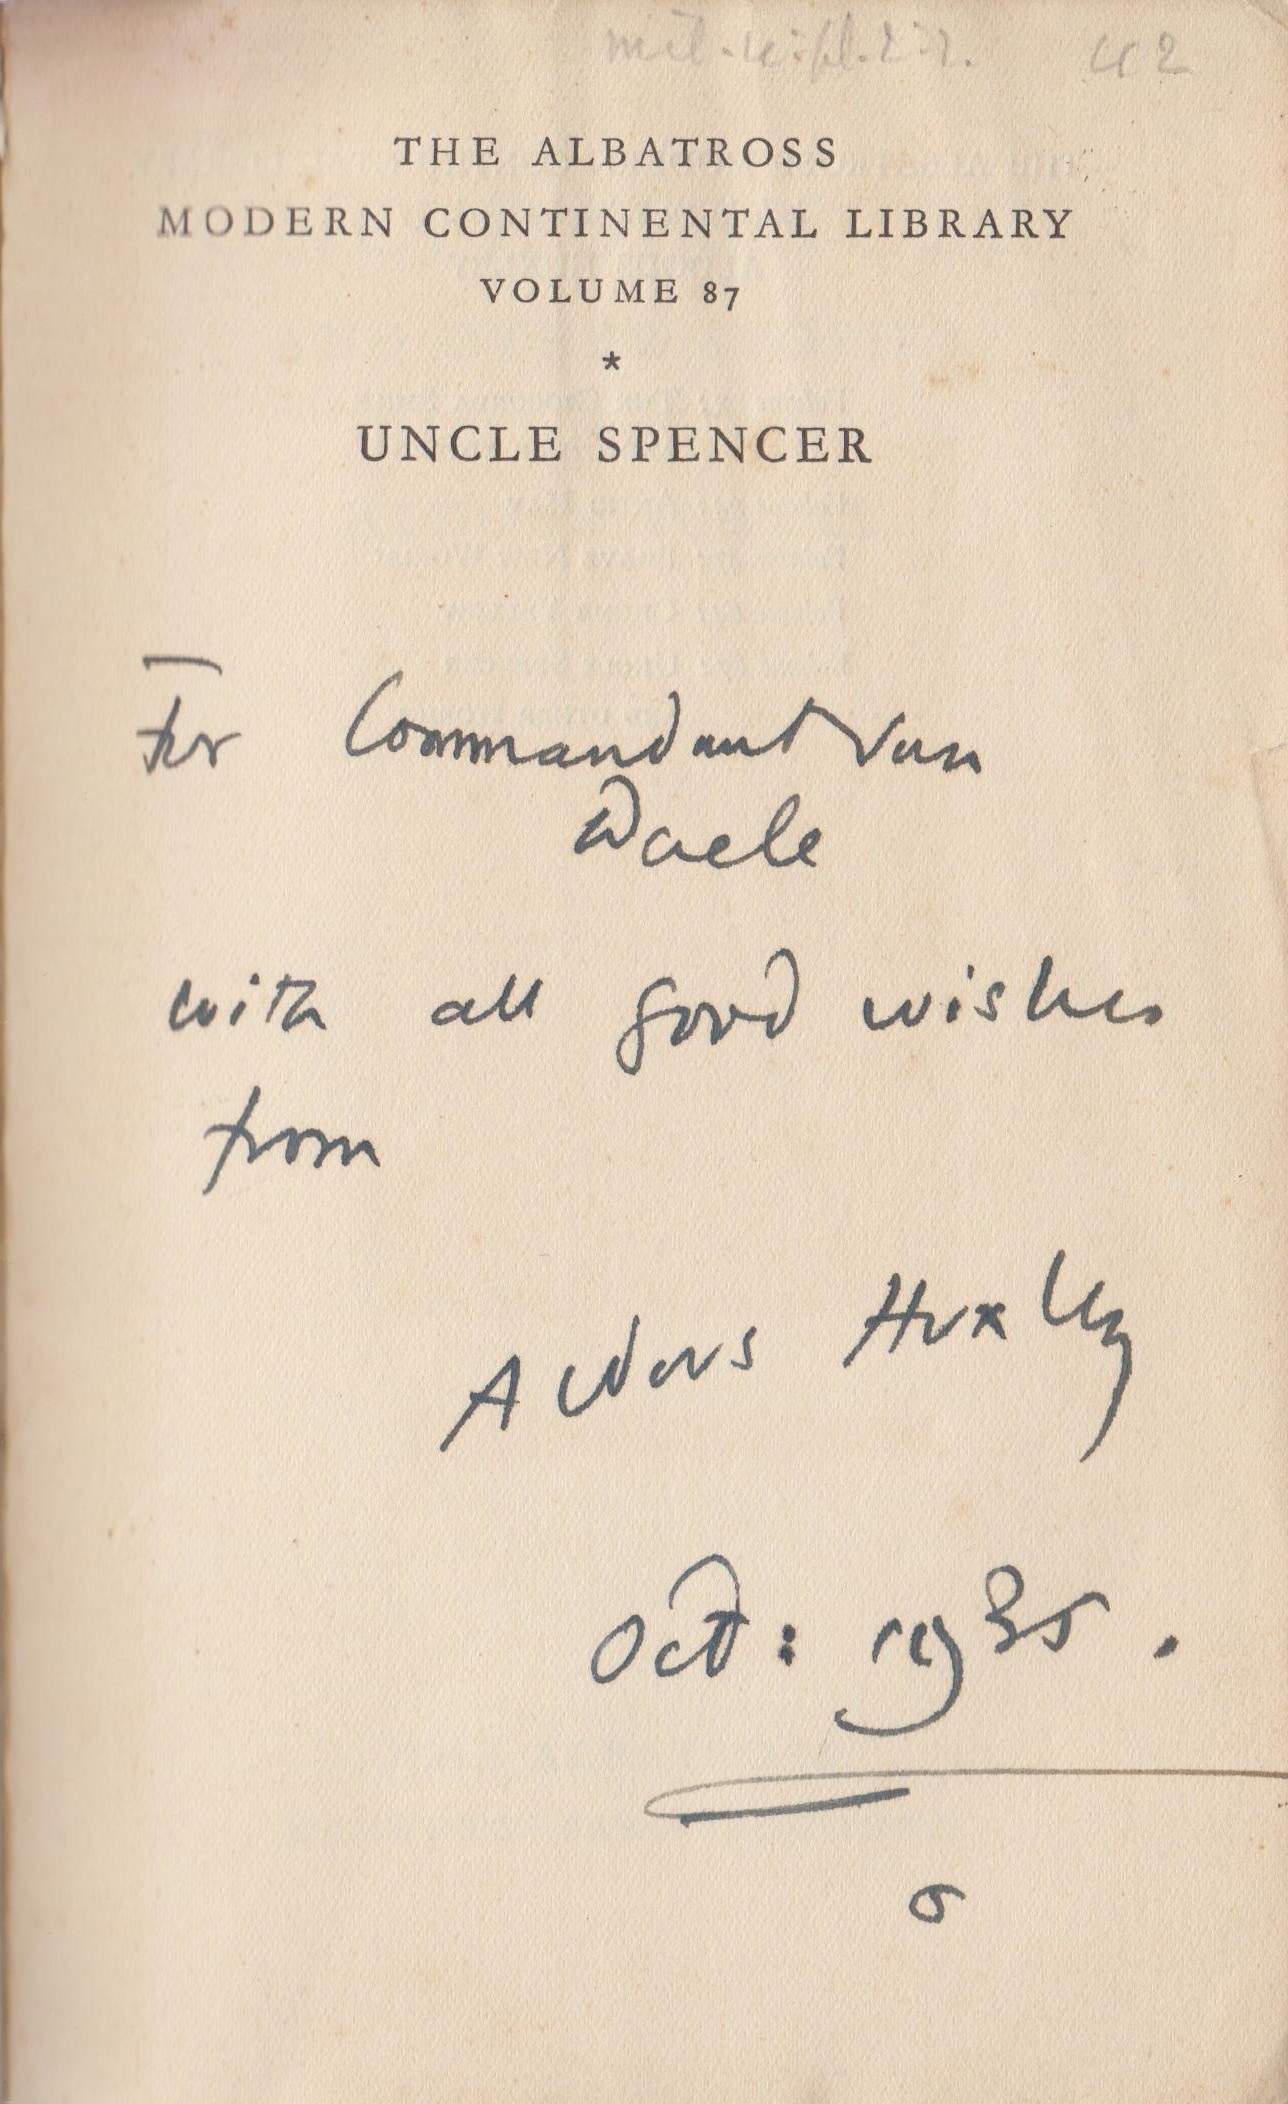 THE ALBATROSS
MODERN CONTINENTAL LIBRARY
VOLUME 87
*
UNCLE SPENCER
For Commandant Van
Daele
with all good wishes
from
Aldous Huxley
Oct: 1935.